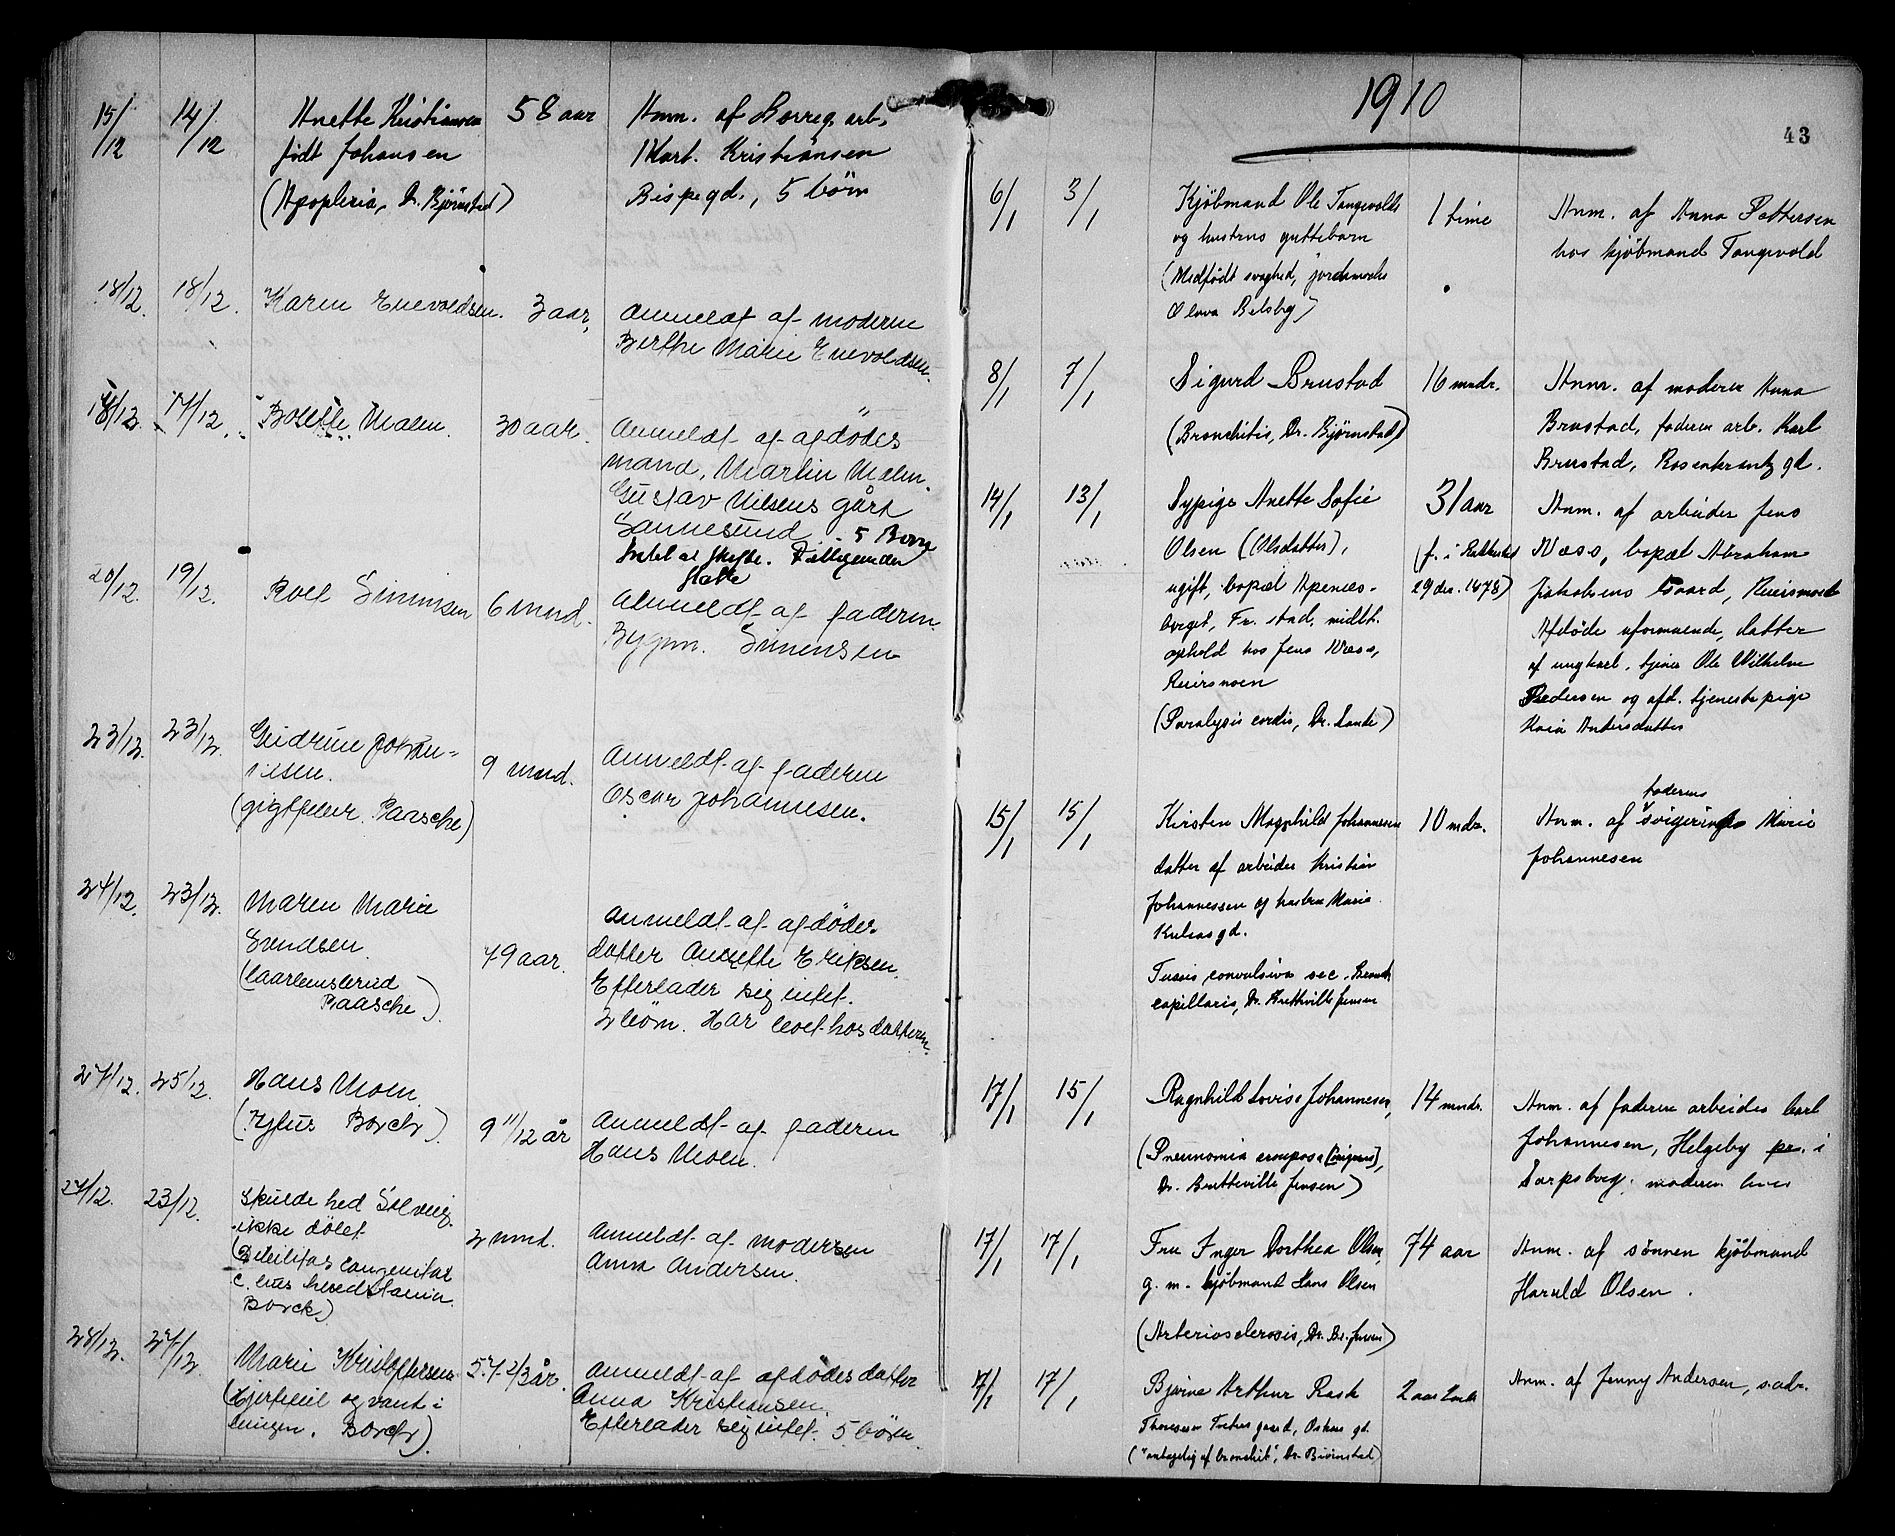 15/12 14/12 Anette Kristiansen 58 aar Anm. af Borreg. arb.
født Johansen Mart. Kristiansen
(Apoplexia, Dr. Bjørnstad) Bispegd., 5 börn
18/12. 18/12. Karen Enevoldsen. 3 aar, Anmeldt af moderen
Berthe Marie Enevoldsen.
18/12. 17/12. Bolette Malm. 30 aar. Anmeldt af afdödes
mand, Martin Malm.
Gustav Nilsens gård
Sannesund. 5 Born
Intet at skifte.
20/12. 19/12. Rolf Simensen 6 mnd. Anmeldt af faderen
Bygm. Simensen
23/12. 23/12. Gudrun Johan-
nesen. 9 mnd. Anmeldt af faderen
(gigtfeber. Paasche) Oscar Johannesen.
24/12. 23/12. Maren Marie
Svendsen. 79 aar. Anmeldt af afdödes
datter Annette Eriksen.
Paasche). Efterlader sig intet.
2 börn. Har levet hos datteren.
27/12. 25/12. Hans Moen.
Borch). 9 11/12 år Anmeldt af faderen
Hans Moen.
27/12. 23/12. Skulde hed Solveig.
ikke döbt 2 mnd. Anmeldt af moderen
(Debilitas congenitae Anna Andersen.
Borch)
28/12. 27/12 Marie Kristoffersen 57 2/3 år. Anmeldt af afdödes datter
(Hjertefeil og vand i Anna Kristiansen.
lungen. Borch). Efterlader sig intet. 5 börn.
1910
43
6/1 3/1 Kjöbmand Ole Tangvolds 1 time Anm. af Anna Pettersen
og hustrus guttebarn hos kjöbmand Tangvold
(Medfödt svaghed, jordmoder
Olava Belsby)
8/1 7/1 Sigurd Brustad 16 mndr. Anm. af moderen Anna
(Bronchitis, Dr. Bjørnstad) Brustad, faderen arb. Karl
Brustad, Rosenkrantz gd.
14/1 13/1 Sypige Anette Sofie 31 aar Anm. af arbeider Jens
Olsen (Olsdatter), (f. i Rakkestad Næss, bopæl Abraham
ugift, bopæl Apenæs- 29 dec. 1878) Jakobsens Gaard, Reiersmoen
berget, Fr. stad, midlt. Afdöde uformuende, datter
ophold hos Jens Næss, af ungkarl, tjener Ole Wilhelm
Reiersmoen Pedersen og afd. tjenestepige
(Paralysis cordis, Dr. Sande) Maria Andersdatter
15/1 15/1 Kirsten Magnhild Johannesen 10 mdr. Anm. af faderens svigerinde Marie
datter af arbeider Kristian Johannesen
Johannessen og hustru Marie
Kulaas gd.
Tussis convulsiva sec. Bronch.
capillaris, Dr. Bretteville Jensen
17/1 15/1 Ragnhild Lovise Johannesen, 14 mndr. Anm. af faderen arbeider Carl
(Pneumonia crouposa Johannesen, Helgeby pr. i
Dr. Bretteville Jensen) Sarpsborg. moderen lever
17/1 17/1 Fru Inger Dorthea Olsen, 74 aar Anm. af sönnen kjöbmand
g. m. kjöbmand Hans Olsen Harald Olsen.
(Arteriosclerosis, Dr. Br. Jensen)
17/1 17/1 Bjarne Arthur Rask Anm. af Jenny Andersen, s. adr.
Oskars gd.
("antagelig af bronchit", Dr. Bjørnstad)